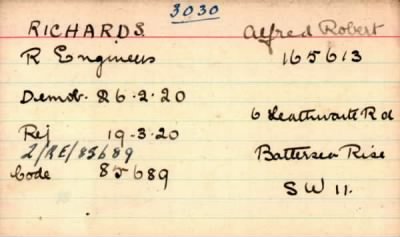 3030
RICHARDS. Alfred Robert
R Engineers 165613
Demob. 26.2.20
6 Leathwaite Rd
Rej 19-3.20
2/RE/85689 Battersea Rise
Code 85689
S W 11.